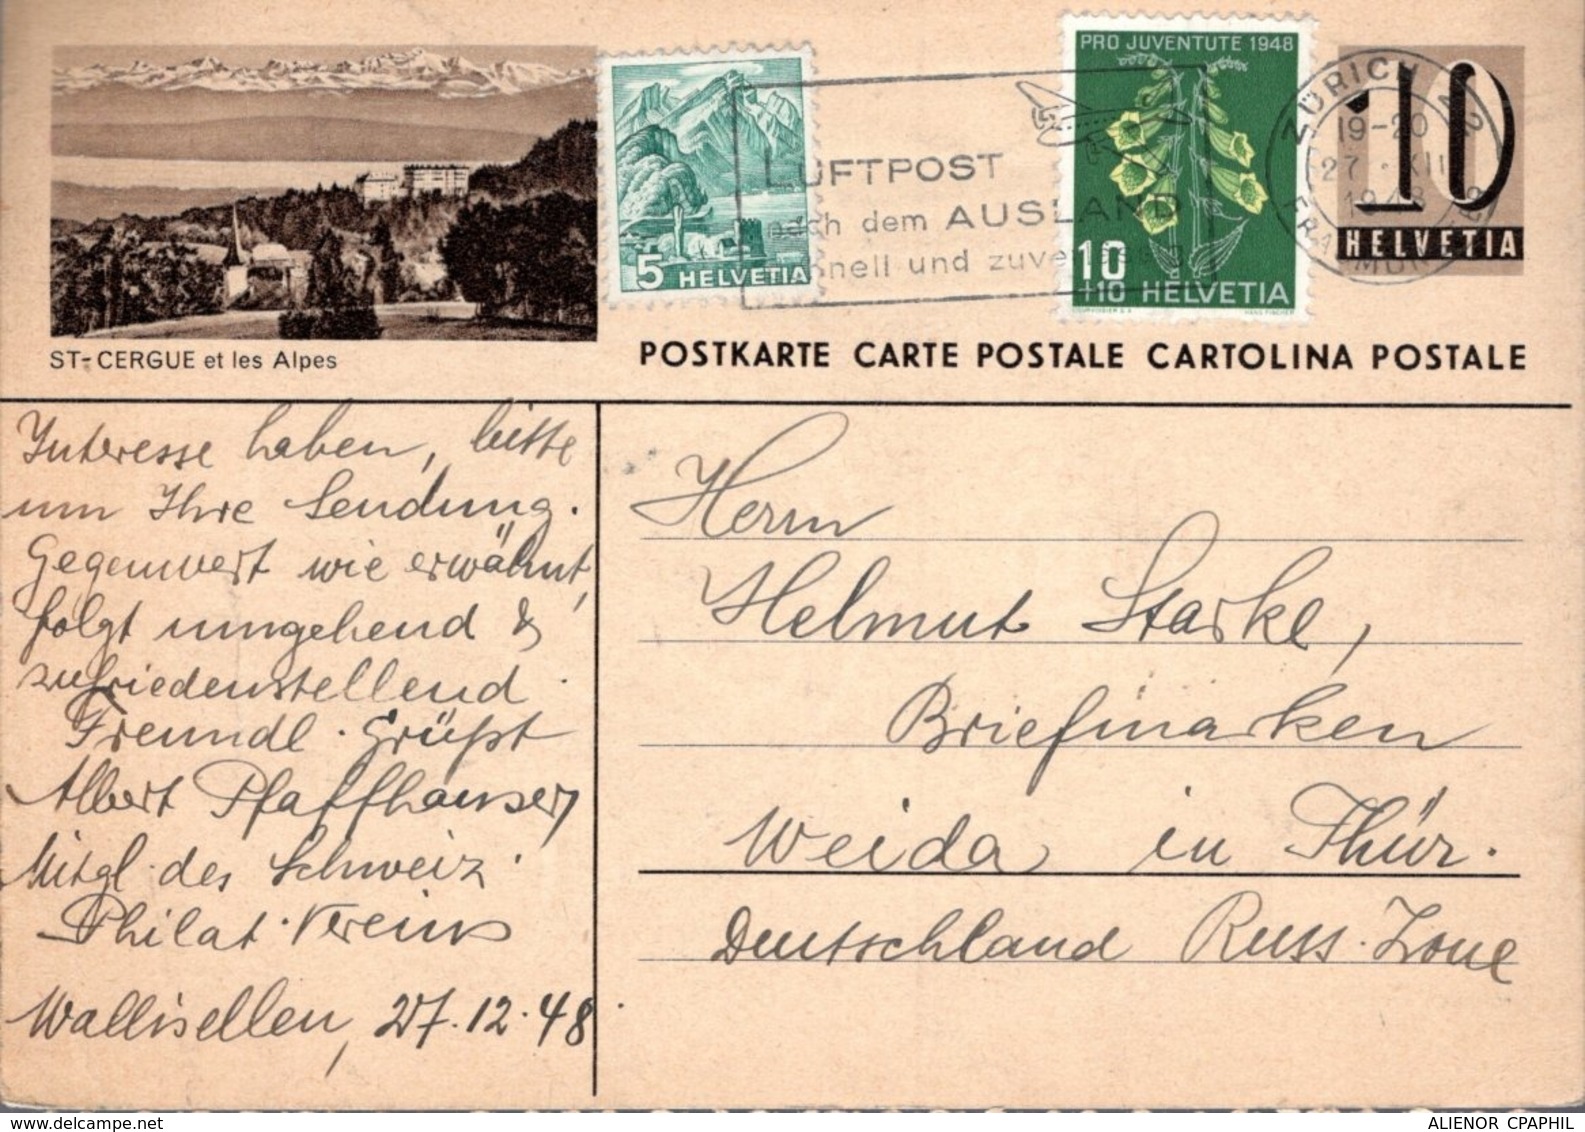 PRO JUVENTUTE 1948
10
+10 HELVETIA
COURVOISIER S.A.
HANS FISCHER
5 HELVETIA
LUFTPOST
nach dem AUSLAND
schnell und zuverlässig
ZÜRICH
19-20
27. XII
1948
FRAUMÜN
10
HELVETIA
ST-CERGUE et les Alpes
POSTKARTE CARTE POSTALE CARTOLINA POSTALE
Interesse haben, bitte
um Ihre Sendung.
Gegenwert wie erwähnt,
folgt umgehend &
zufriedenstellend.
Freundl. Grüßt
Albert Pfaffhauser
Mitgl. des Schweiz.
Philat. Vereins
Wallisellen, 27.12.48.
Herrn
Helmut Starke,
Briefmarken
Weida in Thür.
Deutschland Russ. Zone
delcampe.net
ALIENOR CPAPHIL